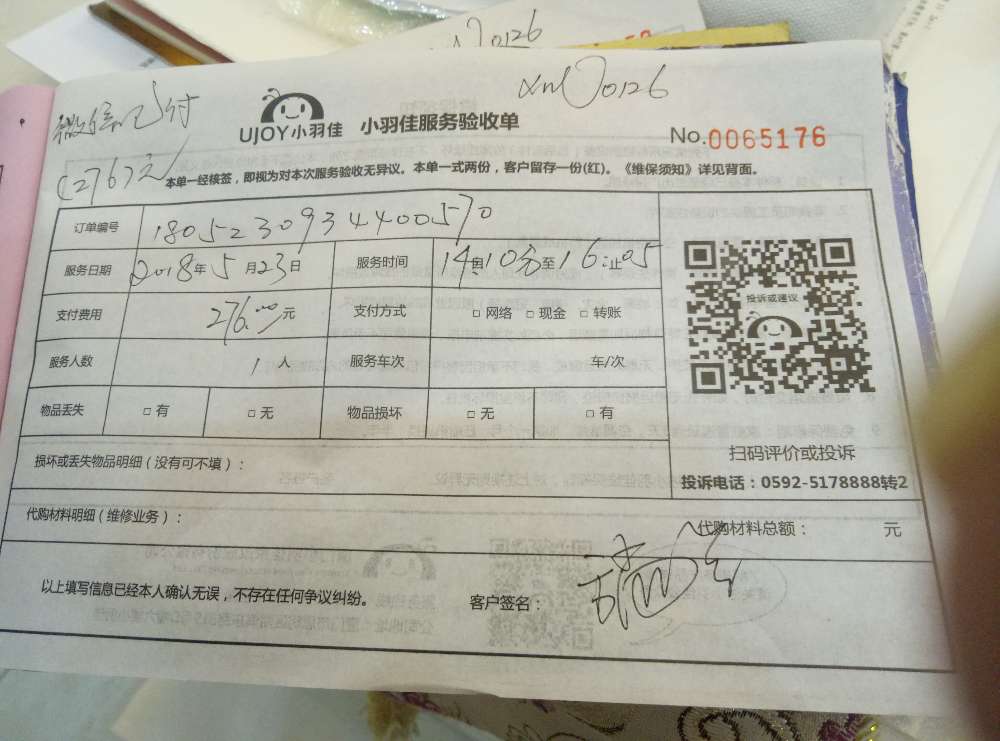 0126
xml00126
微信已付
(276元)
UJOY小羽佳 小羽佳服务验收单
No.0065176
本单一经核签，即视为对本次服务验收无异议。本单一式两份，客户留存一份(红)。《维保须知》详见背面。
订单编号 1805230934400570
服务日期 2018年5月23日 服务时间 14时10分至16:止05
支付费用 276.00元 支付方式 □网络 □现金 □转账
服务人数 1人 服务车次 车/次
物品丢失 □有 □无 物品损坏 □无 □有
投诉或建议
扫码评价或投诉
投诉电话：0592-5178888转2
损坏或丢失物品明细（没有可不填）：
代购材料明细（维修业务）：
代购材料总额： 元
以上填写信息已经本人确认无误，不存在任何争议纠纷。 客户签名：